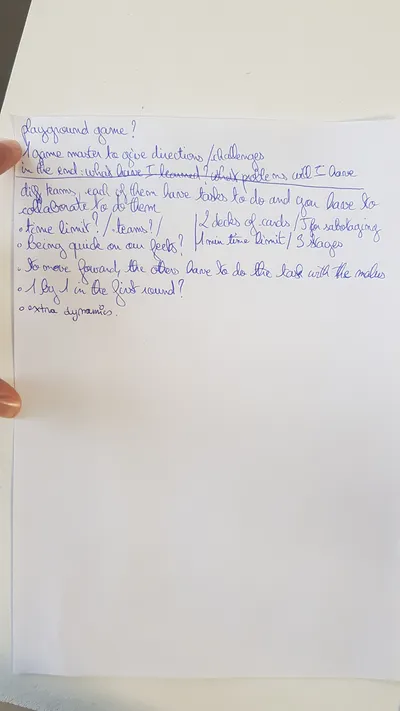 playground game?
1 game master to give directions / challenges
in the end: what have I learned? What problems will I have
diff teams, each of them have tasks to do and you have to
collaborate to do them
• time limit? / teams? / | 2 decks of cards / 5 for sabotaging
• being quick on our feet? | 1 min time limit / 3 stages
• to move forward, the others have to do the task with the
• 1 by 1 in the first round?
• extra dynamics.